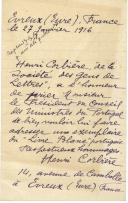 Evreux (Eure), France
le 27 Janvier 1916
Henri Corbière, de la
Société des Gens de
Lettres, a l'honneur
de prier Monsieur
le Président du Conseil
des Ministres du Portugal
de bien vouloir lui faire
adresser une exemplaire
du Livre Blanc portugais
Respectueux hommages,
Henri Corbière
14, avenue de Cambolle
à Evreux (Eure) France